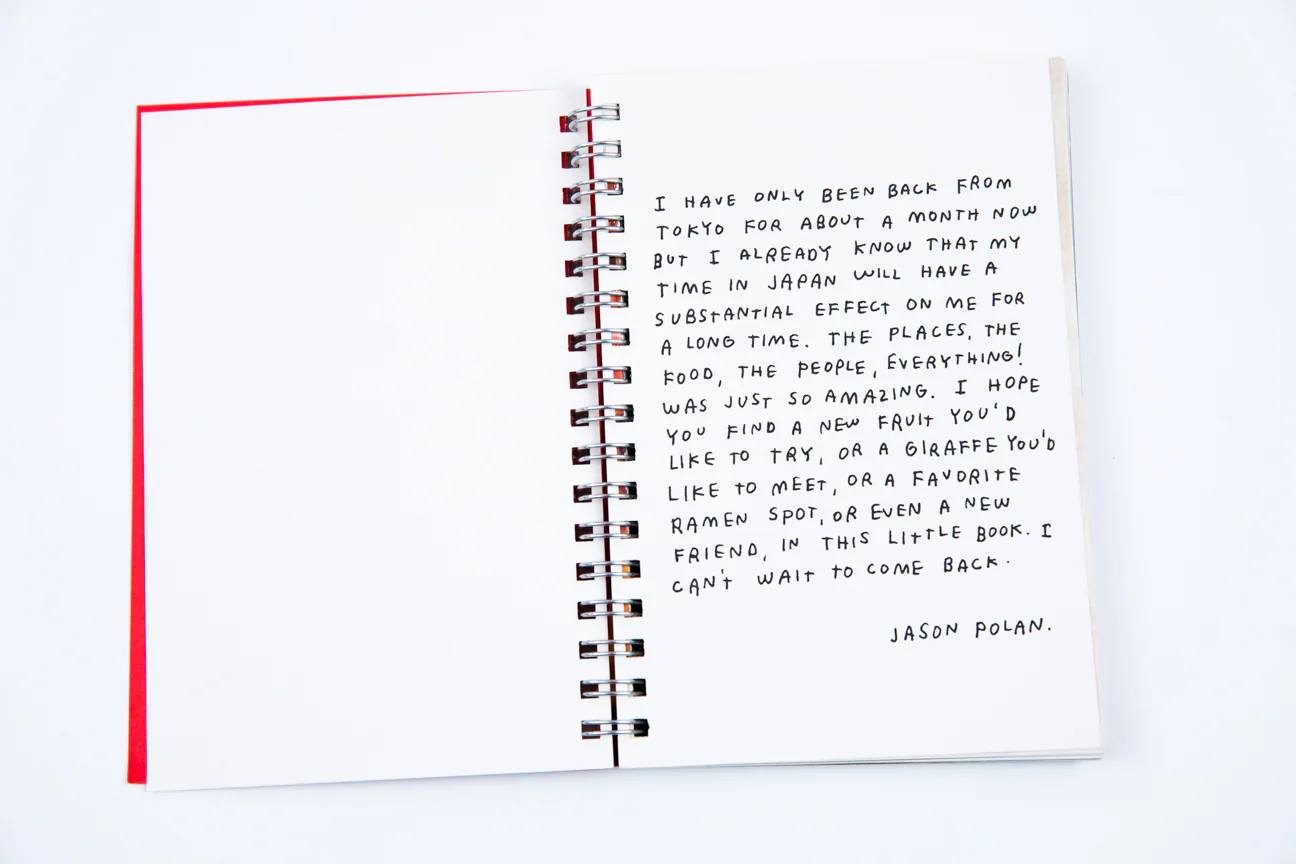 I HAVE ONLY BEEN BACK FROM
TOKYO FOR ABOUT A MONTH NOW
BUT I ALREADY KNOW THAT MY
TIME IN JAPAN WILL HAVE A
SUBSTANTIAL EFFECT ON ME FOR
A LONG TIME. THE PLACES, THE
FOOD, THE PEOPLE, EVERYTHING!
WAS JUST SO AMAZING. I HOPE
YOU FIND A NEW FRUIT YOU'D
LIKE TO TRY, OR A GIRAFFE YOU'D
LIKE TO MEET, OR A FAVORITE
RAMEN SPOT, OR EVEN A NEW
FRIEND, IN THIS LITTLE BOOK. I
CAN'T WAIT TO COME BACK.
JASON POLAN.